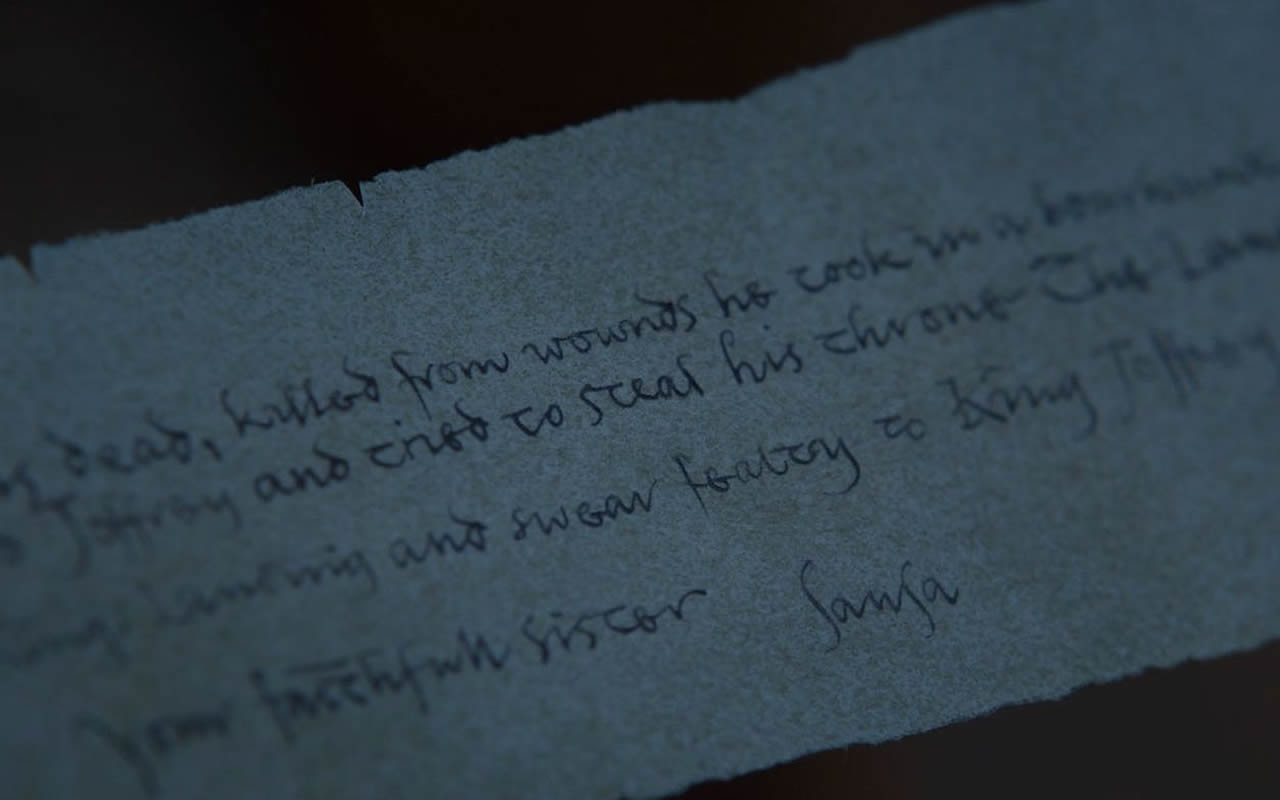 dead, killed from wounds he took in a boar hunt
Joffrey and tried to steal his throne The
and swear fealty to King Joffrey
Your faithfull sister Sansa